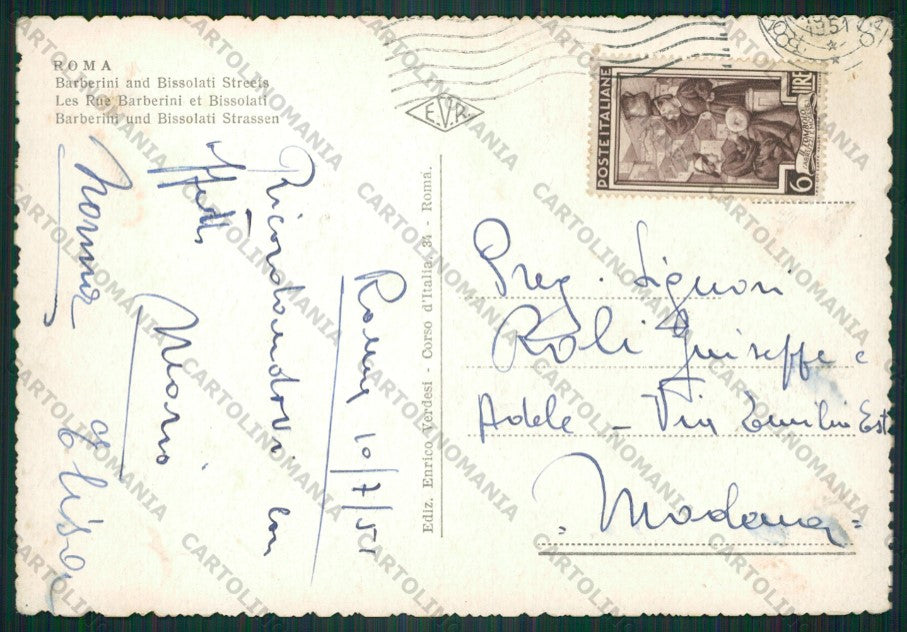 ROMA
Barberini and Bissolati Streets
Les Rue Barberini et Bissolati
Barberini und Bissolati Strassen
E.V.R.
1951
POSTE ITALIANE
LIRE
6
Ediz. Enrico Verdesi - Corso d'Italia, 34 - Roma.
Roma 10/7/51
Ricordandovi con
affetto
Mario
Norma
Preg. Signori
Roli Giuseppe e
Adele - Via Emilia Est
= Modena =
CARTOLINOMANIA